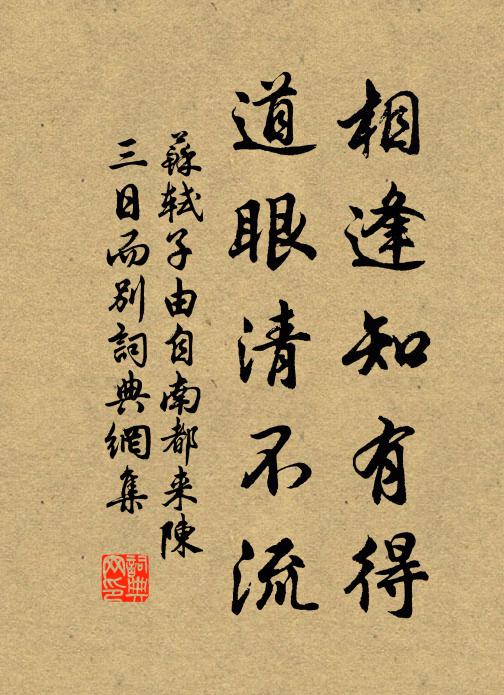 相逢知有得
道眼清不流
蘇軾子由自南都来陳
三日而別詞典網集
詞典
网印